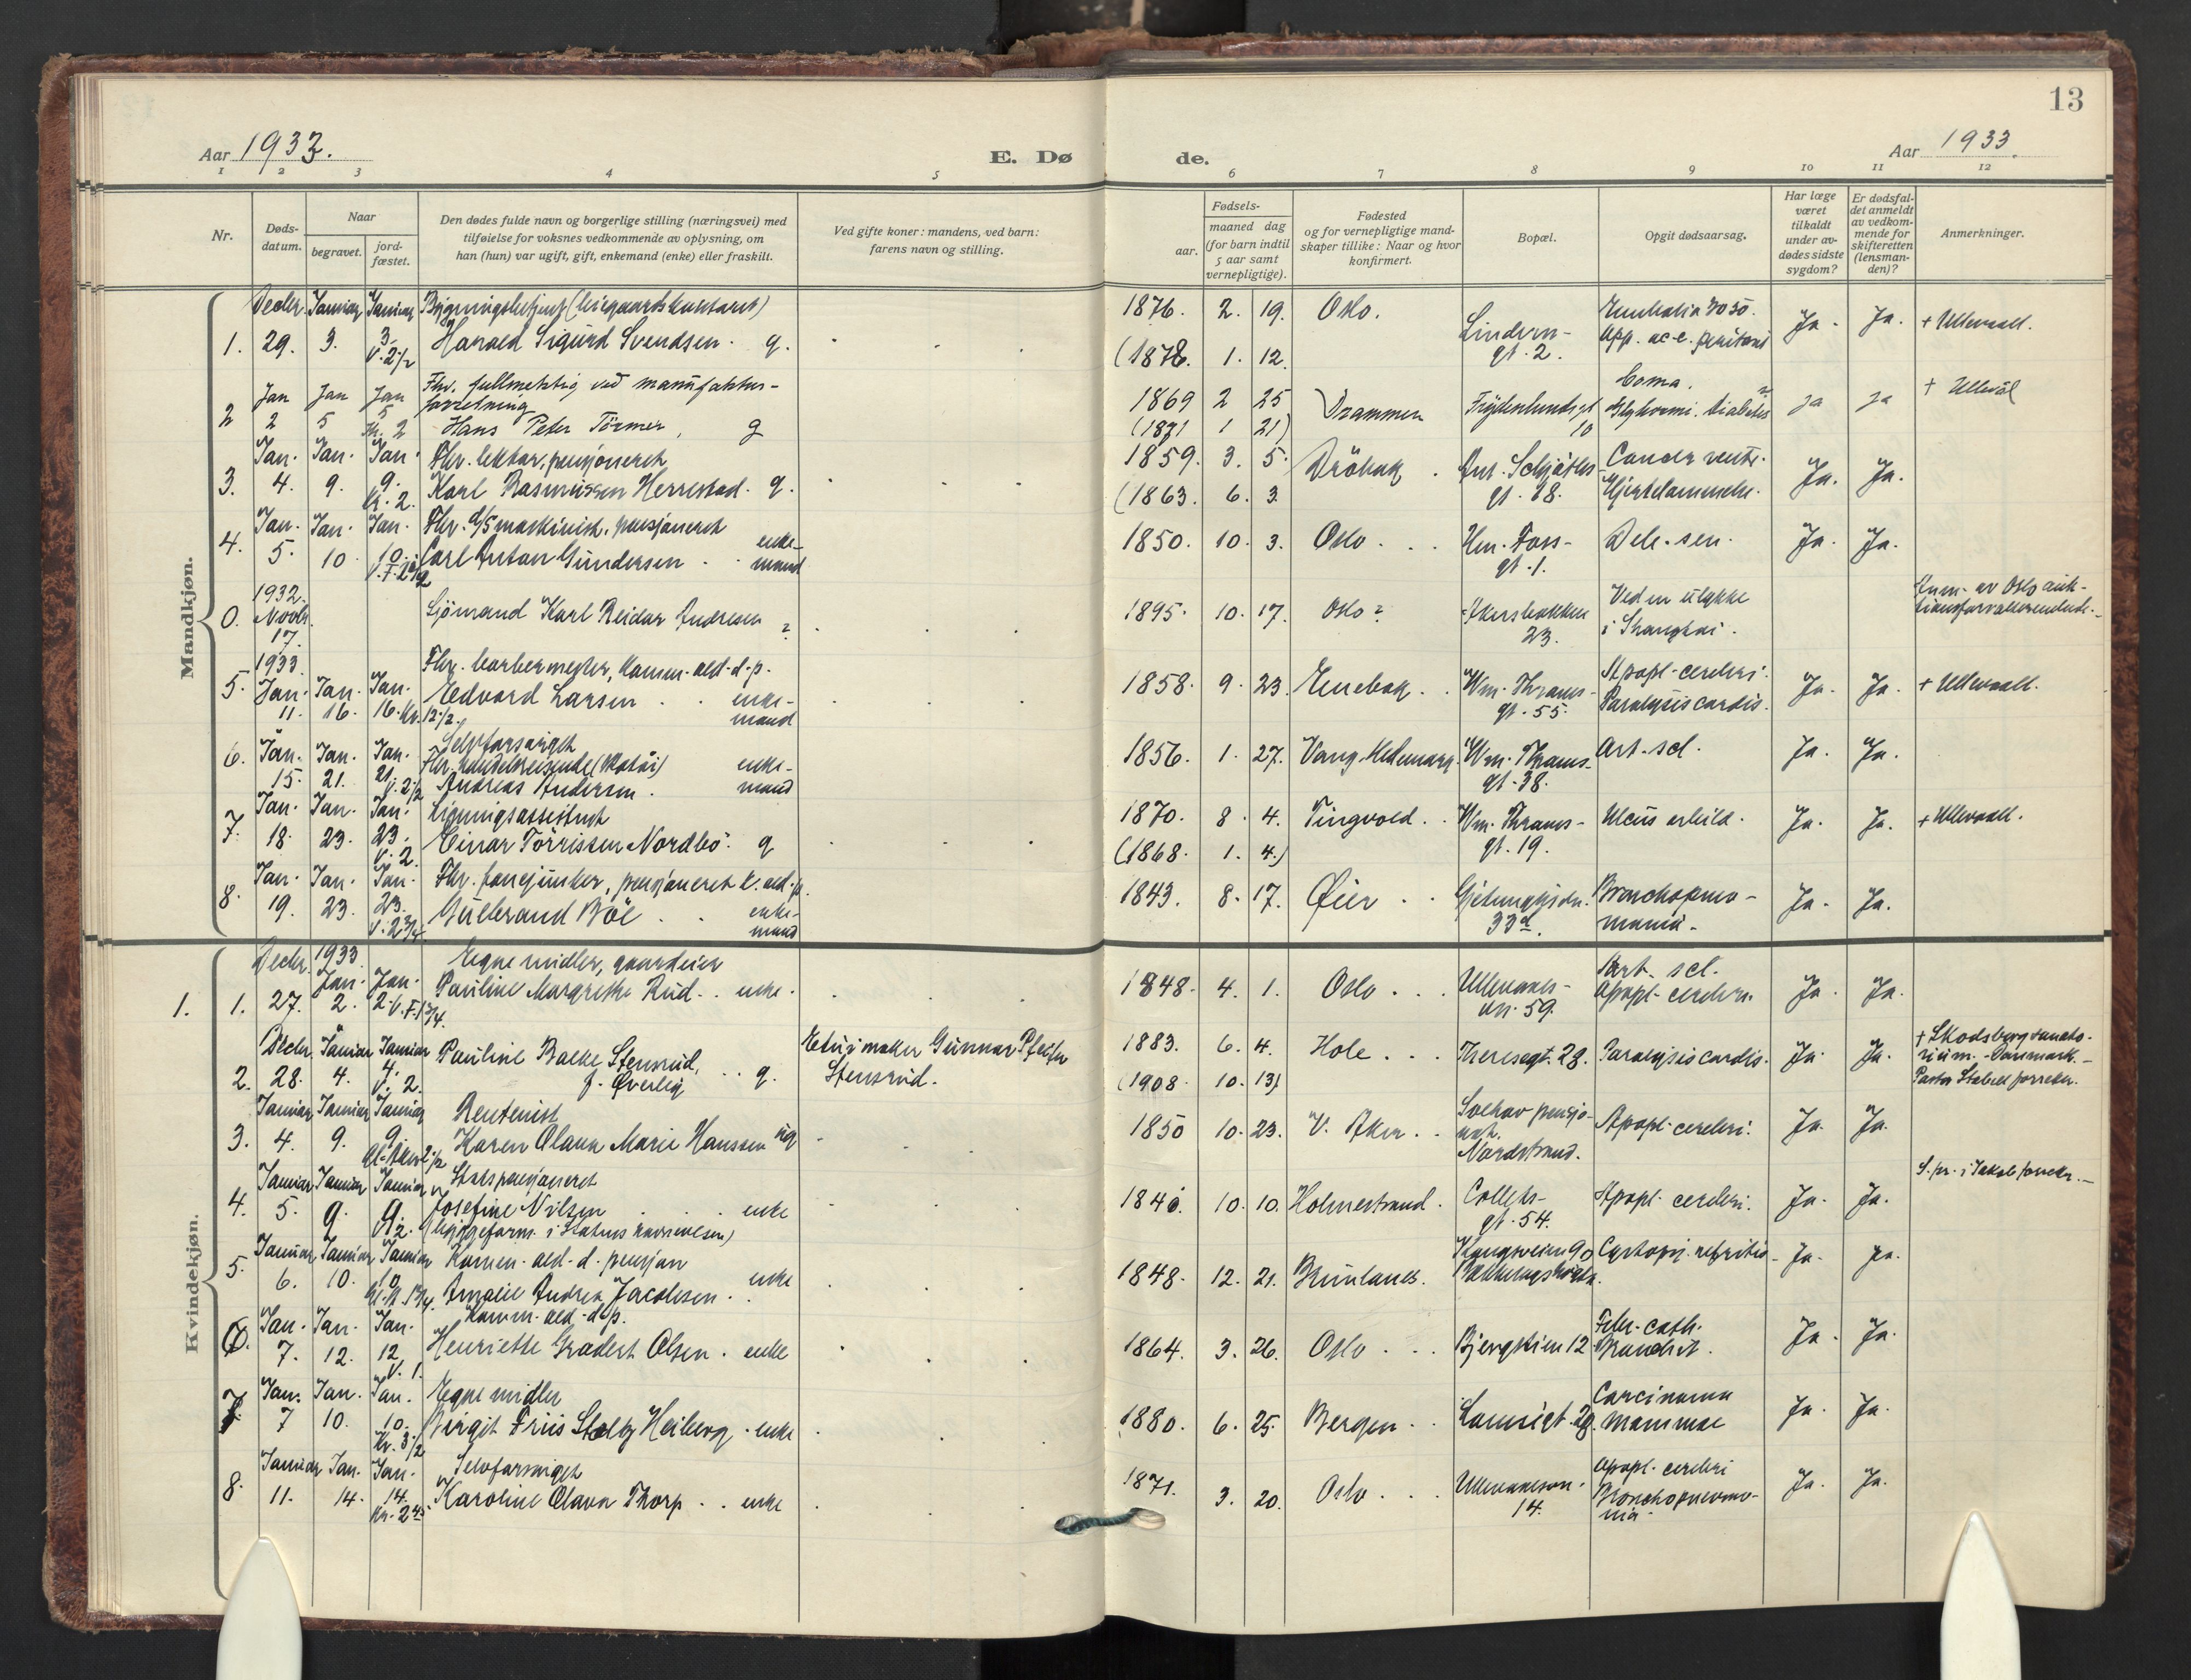 13
Aar 1933. E. Dø de. Aar 1933.
1 2 3 4 5 6 7 8 9 10 11 12
Nr.
Døds-
datum.
Naar
begravet.
jord-
fæstet.
Den dødes fulde navn og borgerlige stilling (næringsvei) med
tilføielse for voksnes vedkommende av oplysning, om
han (hun) var ugift, gift, enkemand (enke) eller fraskilt.
Ved gifte koner: mandens, ved barn:
farens navn og stilling.
Fødsels-
aar.
maaned dag
(for barn indtil
5 aar samt
vernepligtige).
Fødested
og for vernepligtige mand-
skaper tillike: Naar og hvor
konfirmert.
Bopæl.
Opgit dødsaarsag.
Har læge
været
tilkaldt
under av-
dødes sidste
sygdom?
Er dødsfal-
det anmeldt
av vedkom-
mende for
skifteretten
(lensman-
den)?
Anmerkninger.
Mandkjøn.
Decbr. Januar Januar
1. 29. 3. 3. V. 2 1/2 Harald Sigurd Svendsen. g. 1876. 2. 19. Oslo. Lindern- gt. 2. Ja. Ja. + Ullevaall.
(1878. 1. 12.
Jan Jan Jan Fhv. fullmektig ved manufaktur-
forretning
2 2 5 5 Kr. 2 Hans Peter Törmer, g 1869 2 25 Drammen Frydenlundsgt 10 Coma. diabetes ja ja + Ullevål
(1871 1 21)
Jan. Jan. Jan. Fhv. lektor, pensjonert
3. 4. 9. 9. Kr. 2. Karl Rasmussen Herrestad. g. 1859. 3. 5. Dröbak. Ant. Schjøths- gt. 28. Cancer ventr. Hjertelammelse. Ja. Ja.
(1863. 6. 3.
Jan. Jan. Jan. Fhv. maskinist, pensjonert
4. 5. 10. 10. Carl Anton Gundersen. enke- mand 1850. 10. 3. Oslo. Hm. Foss- gt. 1. Dele. sen. Ja. Ja.
1932.
0. Novbr. 17. Sjömand Karl Reidar Andresen ? 1895. 10. 17. Oslo? Akersbakken 23. Ved en ulykke i Shanghai. Anm. av Oslo auk-
1933.
Fhv. barbermester, komm. ald. d. p.
5. Jan. 11. Jan. 16. Jan. 16. Kr. 12 1/2. Edvard Larsen. enke- mand 1858. 9. 23. Enebak. Wm. Thranes- gt. 55. Apopl. cerebri. Paralysis cordis. Ja. Ja. + Ullevaall.
Selvforsörget
6. Jan. 15. Jan. 21. Jan. 21. V. 2 1/2 Fhv. handelsreisende Andreas Andersen. enke- mand 1856. 1. 27. Vang Hedemark. Wm. Thranes- gt. 38. Art. scl. Ja. Ja.
Jan. Jan. Jan. Ligningsassistent
7. 18. 23. 23. V. 2. Einar Törrissen Nordbö. g 1870. 8. 4. Tingvold. Wm. Thranes- gt. 19. Ulcus Ja. Ja. + Ullevaall.
(1868. 1. 4.)
Jan. Jan. Jan. Fhv. fanejunker, pensjoneret
8. 19. 23. 23. V. 2 3/4. Gulbrand Böe. enke- mand 1843. 8. 17. Øier. 33 Bronchopneu- monia. Ja. Ja.
Kvindekjøn.
Decbr. 1933 Jan. Jan. Egne midler, gaardeier
1. 1. 27. 2. 2. V. F. 1 3/4. Pauline Margrethe Rud. enke. 1848. 4. 1. Oslo. Ullevaals- vn. 59. Art. scl. Apopl. cerebri. Ja. Ja.
Decbr. Januar Januar
2. 28. 4. 4. V. 2. Pauline Backe Stensrud, f. Øverby g. Etuimaker Gunnar Pfeifer Stensrud. 1883. 6. 4. Hole. Theresegt. 28. Paralysis cordis. Ja. Ja. + Skodsborg sanato- rium. Danmark.
(1908. 10. 13)
Januar Januar Januar Rentenist
3. 4. 9. 9. Karen Olava Marie Hanssen ug 1850 10. 23. V. Aker. Solhav pensjo- nat. Nordstrand. Apopl. cerebri. Ja. Ja.
Januar Januar Januar Statspensjoneret
4. 5. 9. 9. Josefine Nilsen enke 10. 10. Holmestrand. Colletts- gt. 54. Apopl. cerebri. Ja. Ja. S. pr. i Jakob
Januar Januar Januar Komm. ald. d. pensjon
5. 6. 10. 10. Amalie Andrea Jacobsen. enke 1848. 12. 21. Brunlanes. Ja. Ja.
Jan. Jan. Jan. Komm. ald. d. p.
6. 7. 12. 12. V. 1. Henriette Olsen. enke 1864. 3. 26. Oslo. Bjergstien 12 Febr. cath. Bronchit. Ja. Ja.
Jan. Jan. Jan. Egne midler
7. 7 10. 10. Birgit Friis Stoltz Heiberg. enke 1880. 6. 25. Bergen. Carcinoma mammae Ja. Ja.
Januar Jan. Jan. Selvforsörget
8. 11. 14. 14. Kr. 2 Karoline Olava Thorp. enke 1871. 3. 20. Oslo. 14. Apopl. cerebri Bronchopneumo- nia. Ja. Ja.